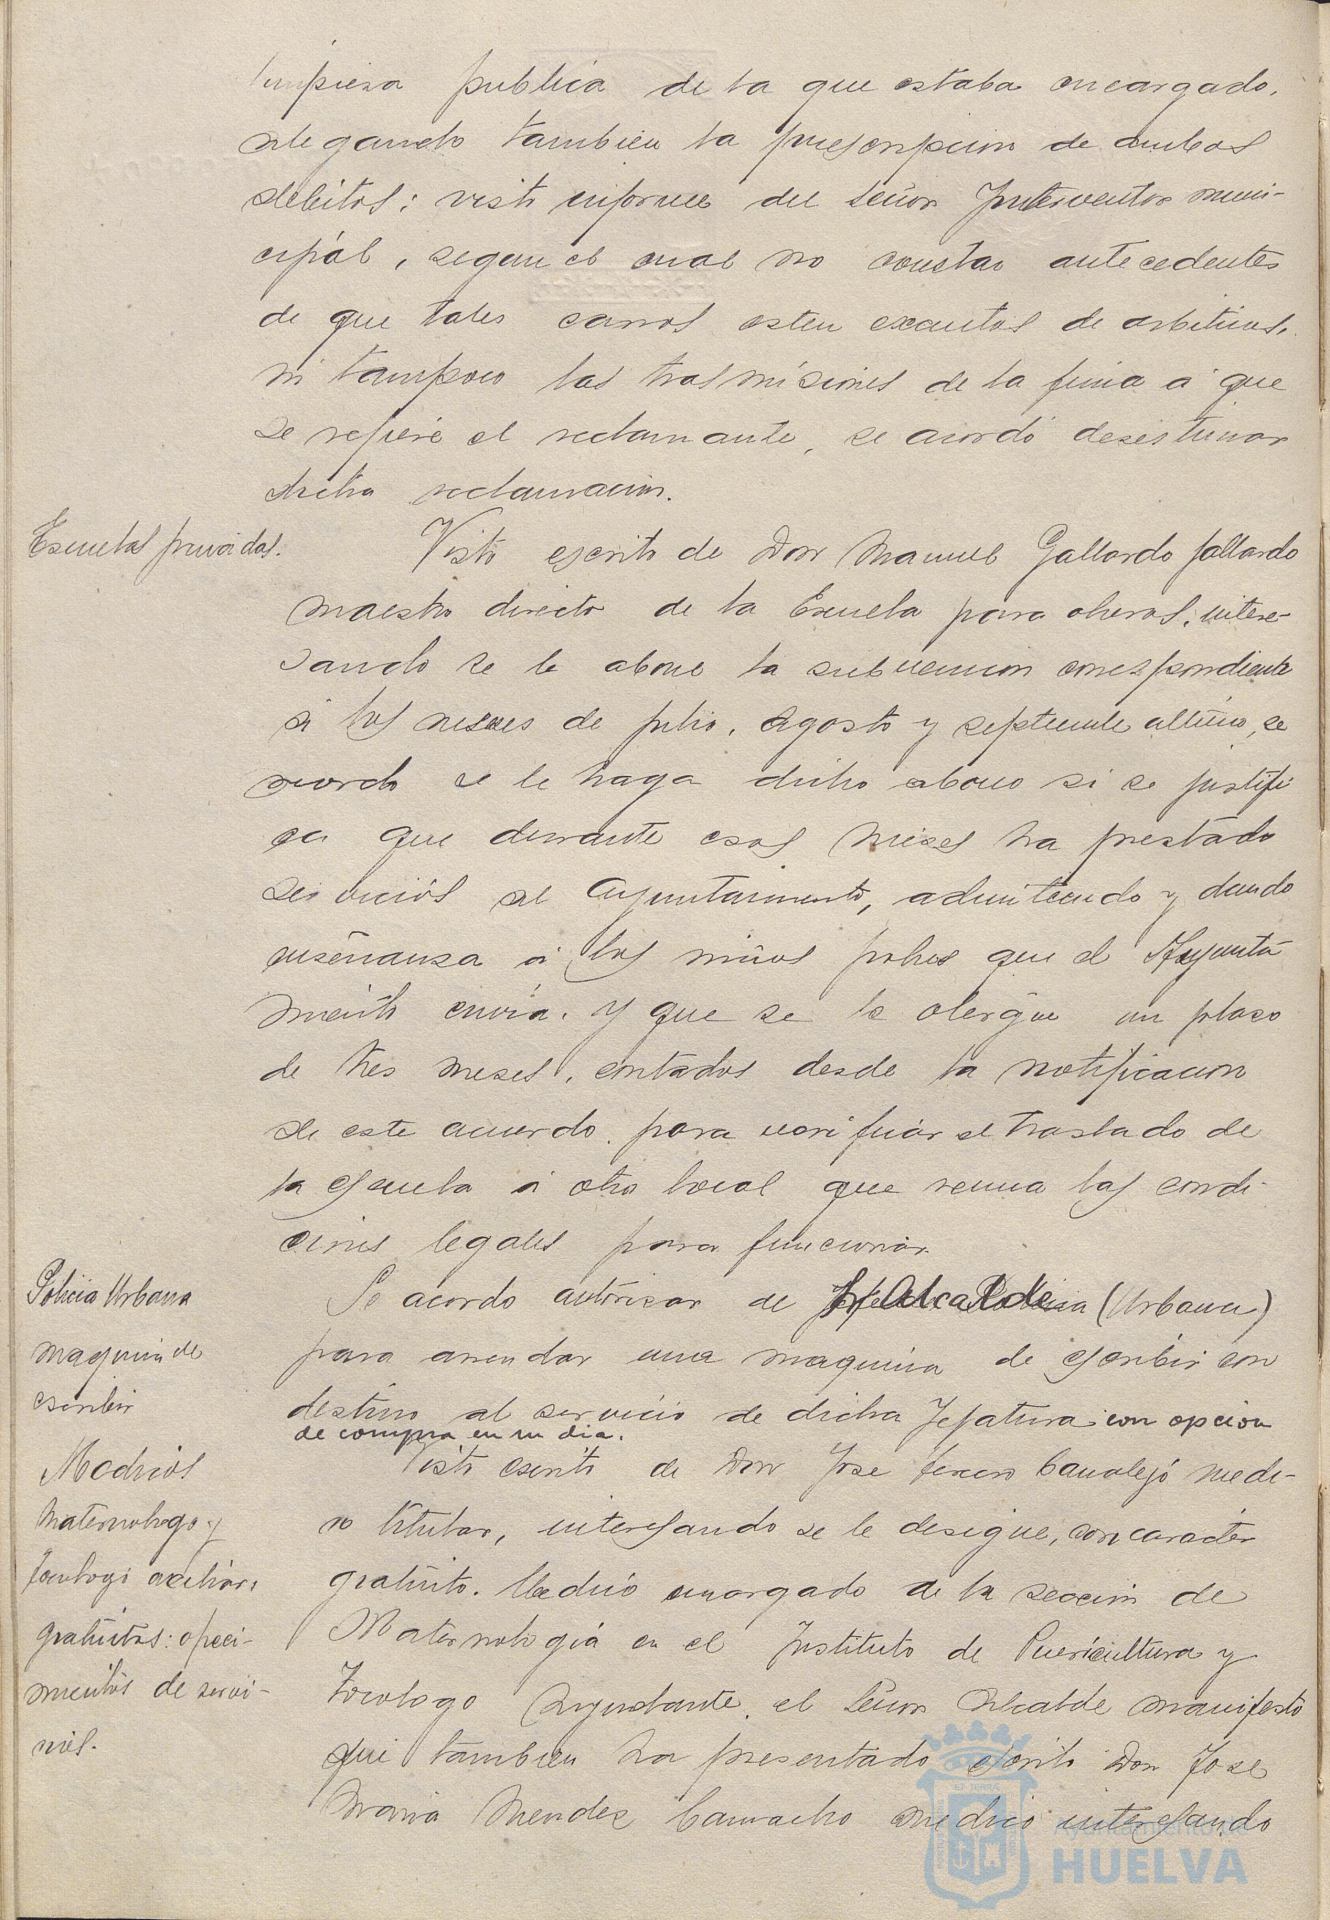 limpieza publica de la que estaba encargado,
alegando tambien la prescripcion de ambos
debitos; visto informe del Señor Interventor muni-
cipal, segun el cual no constan antecedentes
de que tales carros esten exentos de arbitrios,
ni tampoco las trasmisiones de la finca a que
se refiere el reclamante, se acordó desestimar
dicha reclamacion.
Escuelas privadas.
Visto escrito de Don Manuel Gallardo Gallardo
maestro director de la Escuela para obreros, intere-
sando se le abone la subvencion correspondiente
á los meses de julio, Agosto y septiembre ultimo, se
acordo se le haga dicho abono si se justifi
ca que durante esos meses ha prestado
servicios al Ayuntamiento, admitiendo y dando
enseñanza á los niños pobres que el Ayunta
miento envia. Y que se le otorgue un plazo
de tres meses, contados desde la notificacion
de este acuerdo, para verificar el traslado de
la escuela á otro local que reuna las condi-
ciones legales para funcionar.
Policia Urbana
maquina de
escribir
Se acordo autorizar de Sr Alcalde (Urbana)
para arrendar una maquina de escribir con
destino al servicio de dicha Jefatura con opcion
de compra en un dia.
Medicos
Maternologo y
Tocologo auxiliar,
gratuitos: ofreci-
mientos de servi-
cios.
Visto escrito de Don Jose Canalejo medi-
co titular, interesando se le designe, con caracter
gratuito, Medico encargado de la seccion de
Maternologia en el Instituto de Puericultura y
Tocologo Ayudante, el Señor Alcalde manifesto
que tambien ha presentado escrito Don Jose
Maria Mendez Camacho medico interesando
Ayuntamiento de
HUELVA